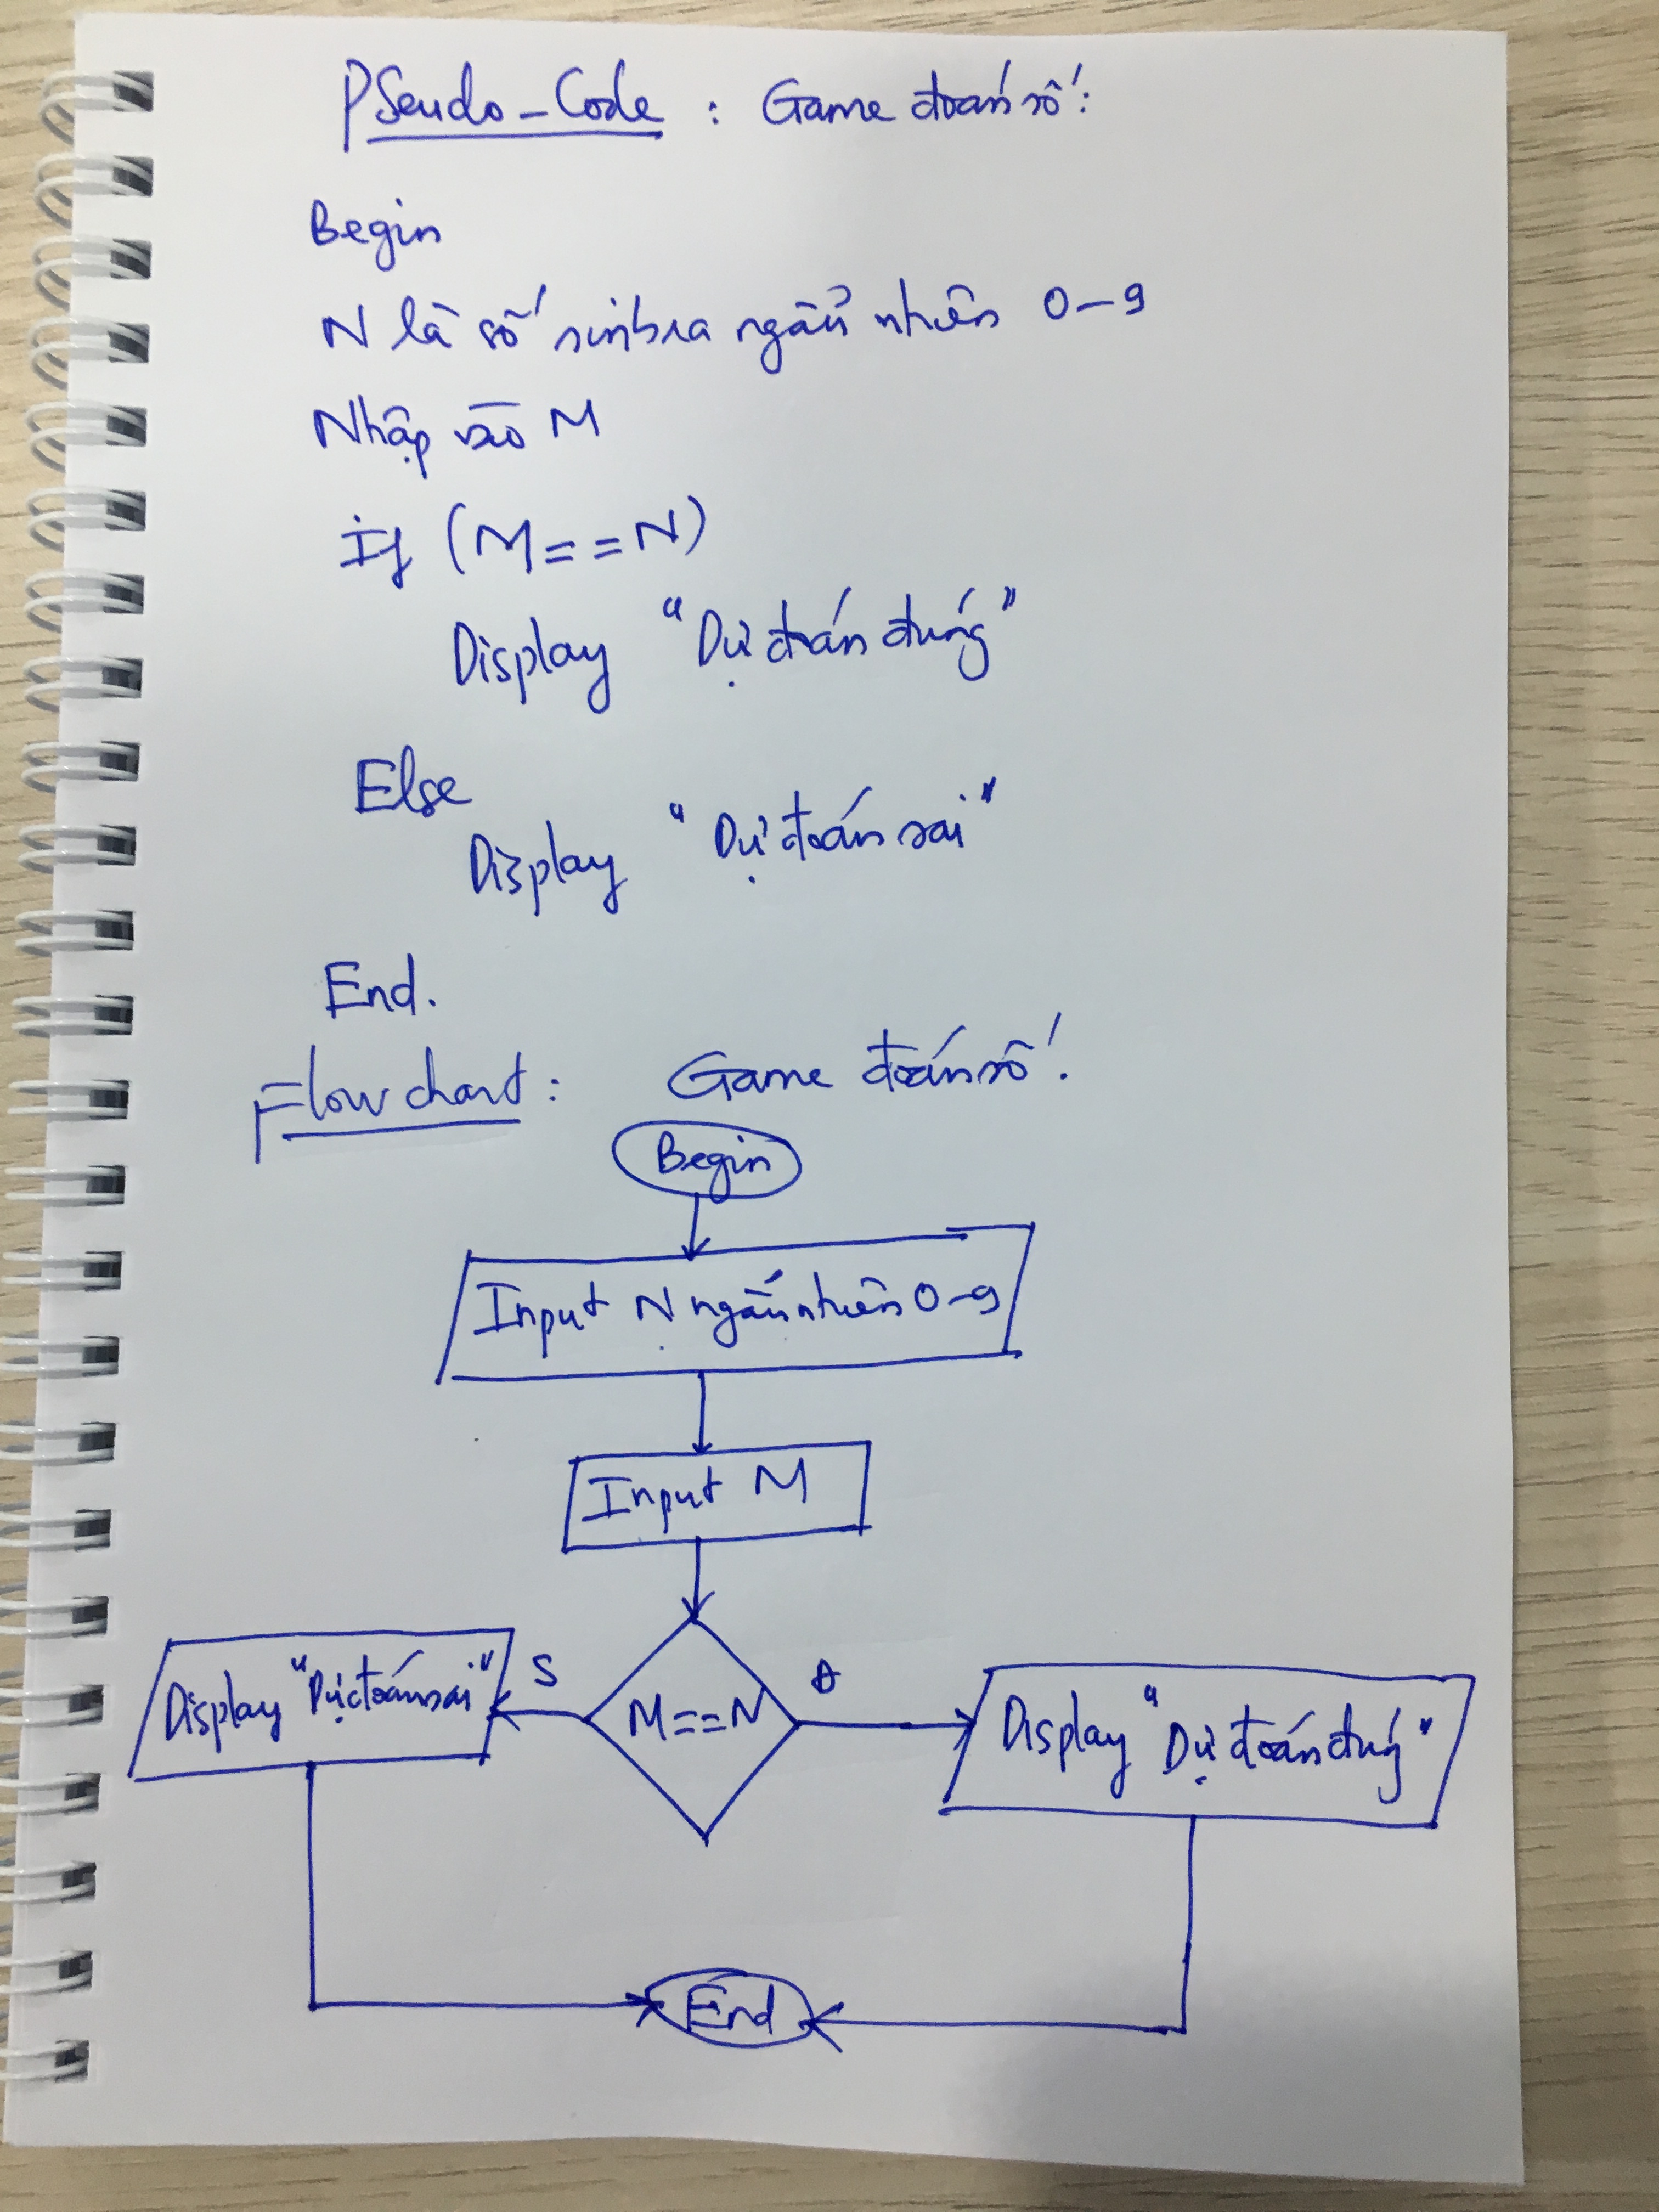 Pseudo-Code : Game đoán số:
Begin
N là số sinh ra ngẫu nhiên 0-9
Nhập vào M
If (M==N)
Display "Dự đoán đúng"
Else
Display "Dự đoán sai"
End.
Flow chart: Game đoán số.
Begin
Input N ngẫu nhiên 0-9
Input M
S
Đ
Display "Dự đoán sai"
M==N
Display "Dự đoán đúng"
End